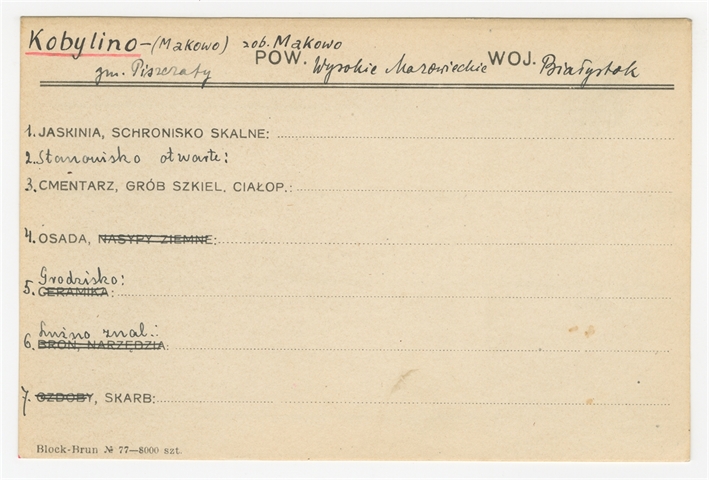 Kobylino-(Makowo) zob. Makowo
gm. Piszczaty POW. Wysokie Mazowieckie WOJ. Białystok
1. JASKINIA, SCHRONISKO SKALNE:
2. Stanowisko otwarte:
3. CMENTARZ, GRÓB SZKIEL. CIAŁOP.:
4. OSADA, NASYPY ZIEMNE:
Grodzisko:
5. CERAMIKA:
Luźno znal.:
6. BROŃ, NARZĘDZIA:
7. OZDOBY, SKARB:
Block-Brun № 77—8000 szt.